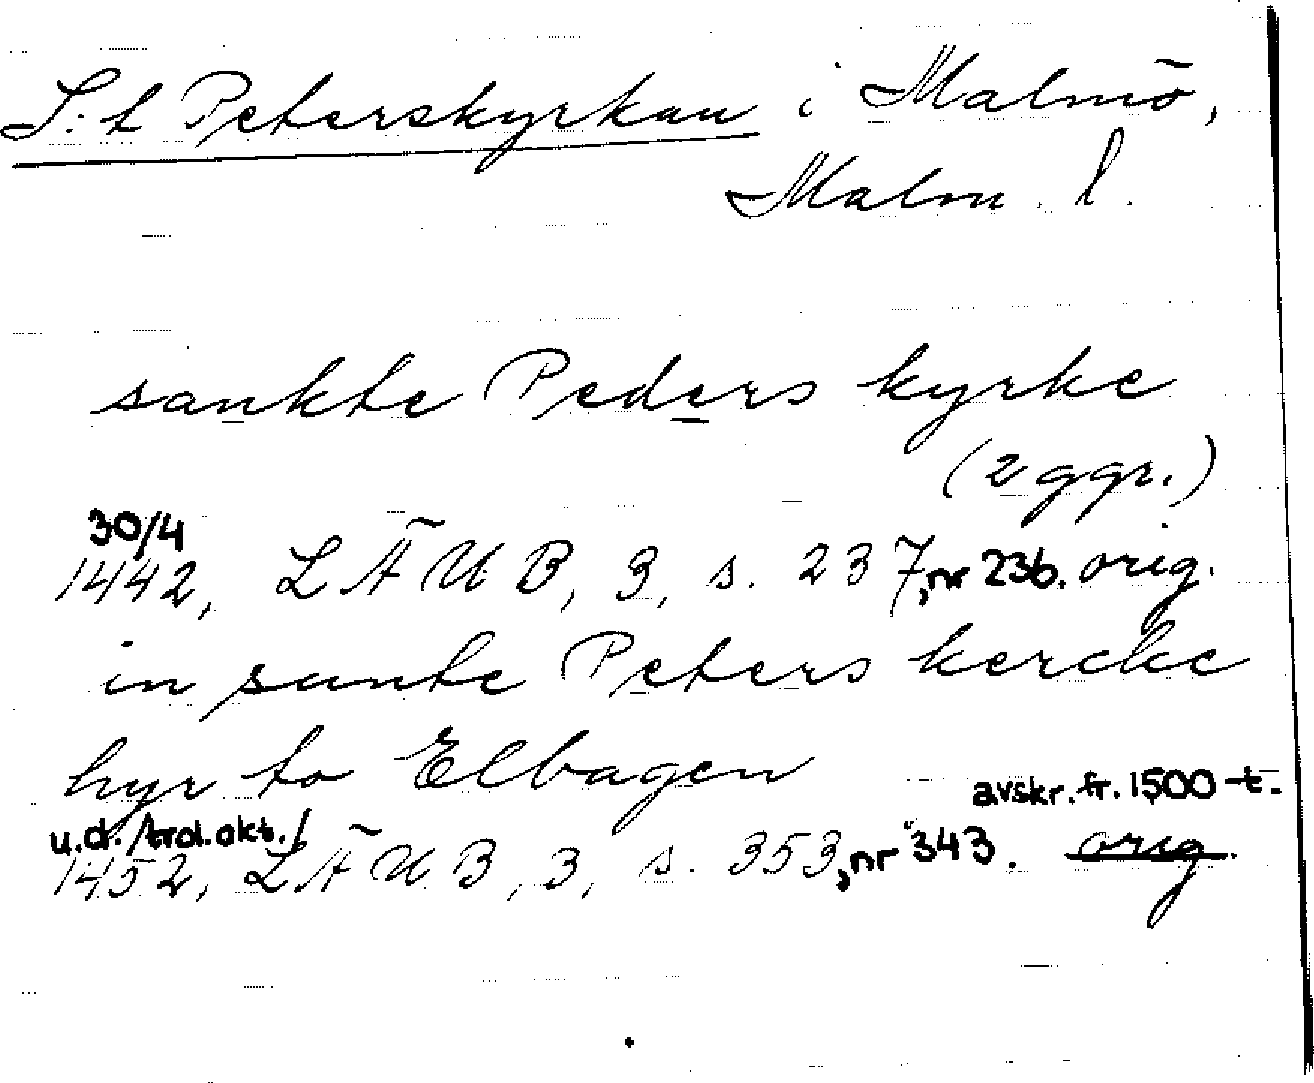 S:t Peterskyrkan i Malmö,
Malm. l.
sankte Peders kyrke
(2 ggr.)
30/4
1442, LÄUB, 3, s. 237, nr 236. orig.
in sunte Peters kercke
hyr to Elbagen
avskr. fr. 1500-t.
u.d. /trol. okt./
1452, LÄUB, 3, s. 353, nr 343. orig.